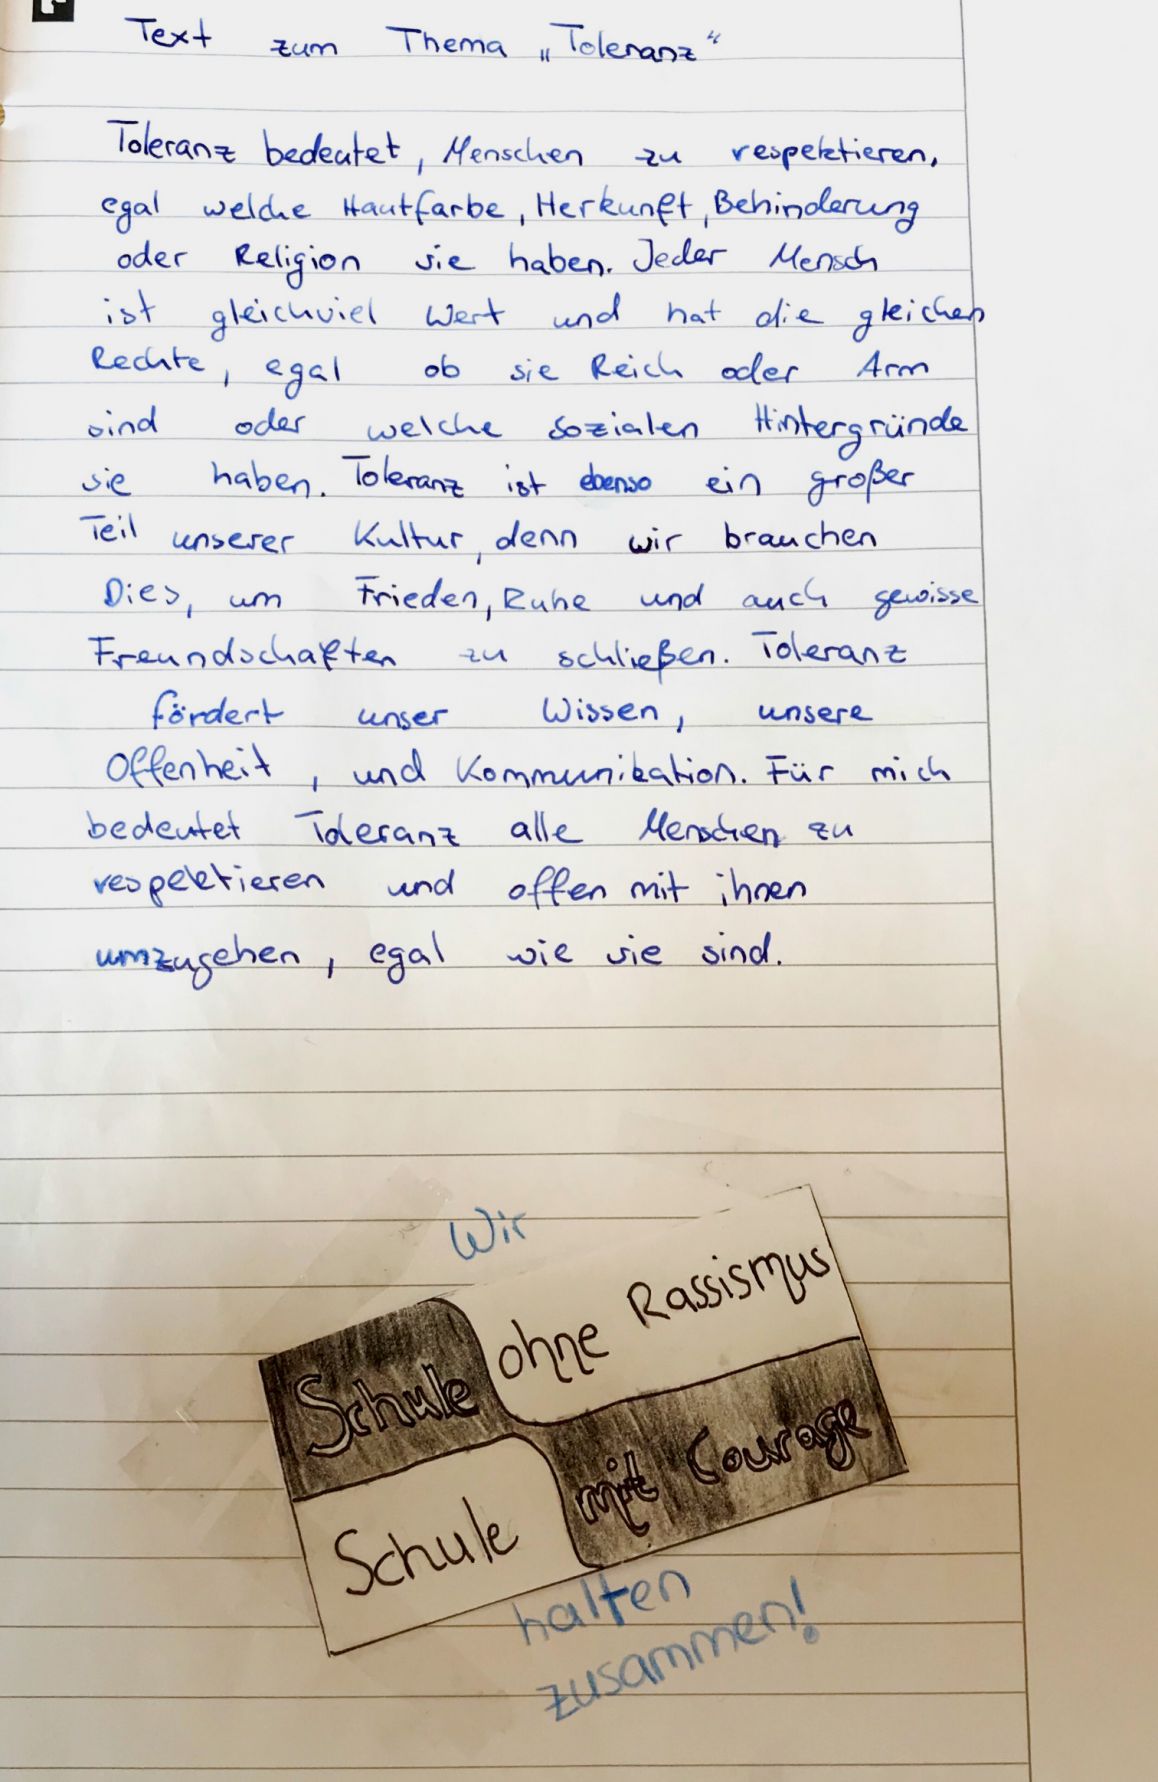 Text zum Thema „Toleranz“
Toleranz bedeutet, Menschen zu respektieren,
egal welche Hautfarbe, Herkunft, Behinderung
oder Religion sie haben. Jeder Mensch
ist gleichviel Wert und hat die gleichen
Rechte, egal ob sie Reich oder Arm
sind oder welche sozialen Hintergründe
sie haben. Toleranz ist ebenso ein großer
Teil unserer Kultur, denn wir brauchen
Dies, um Frieden, Ruhe und auch gewisse
Freundschaften zu schließen. Toleranz
fördert unser Wissen, unsere
Offenheit, und Kommunikation. Für mich
bedeutet Toleranz alle Menschen zu
respektieren und offen mit ihnen
umzugehen, egal wie sie sind.
Wir
Schule ohne Rassismus
Schule mit Courage
halten
zusammen!